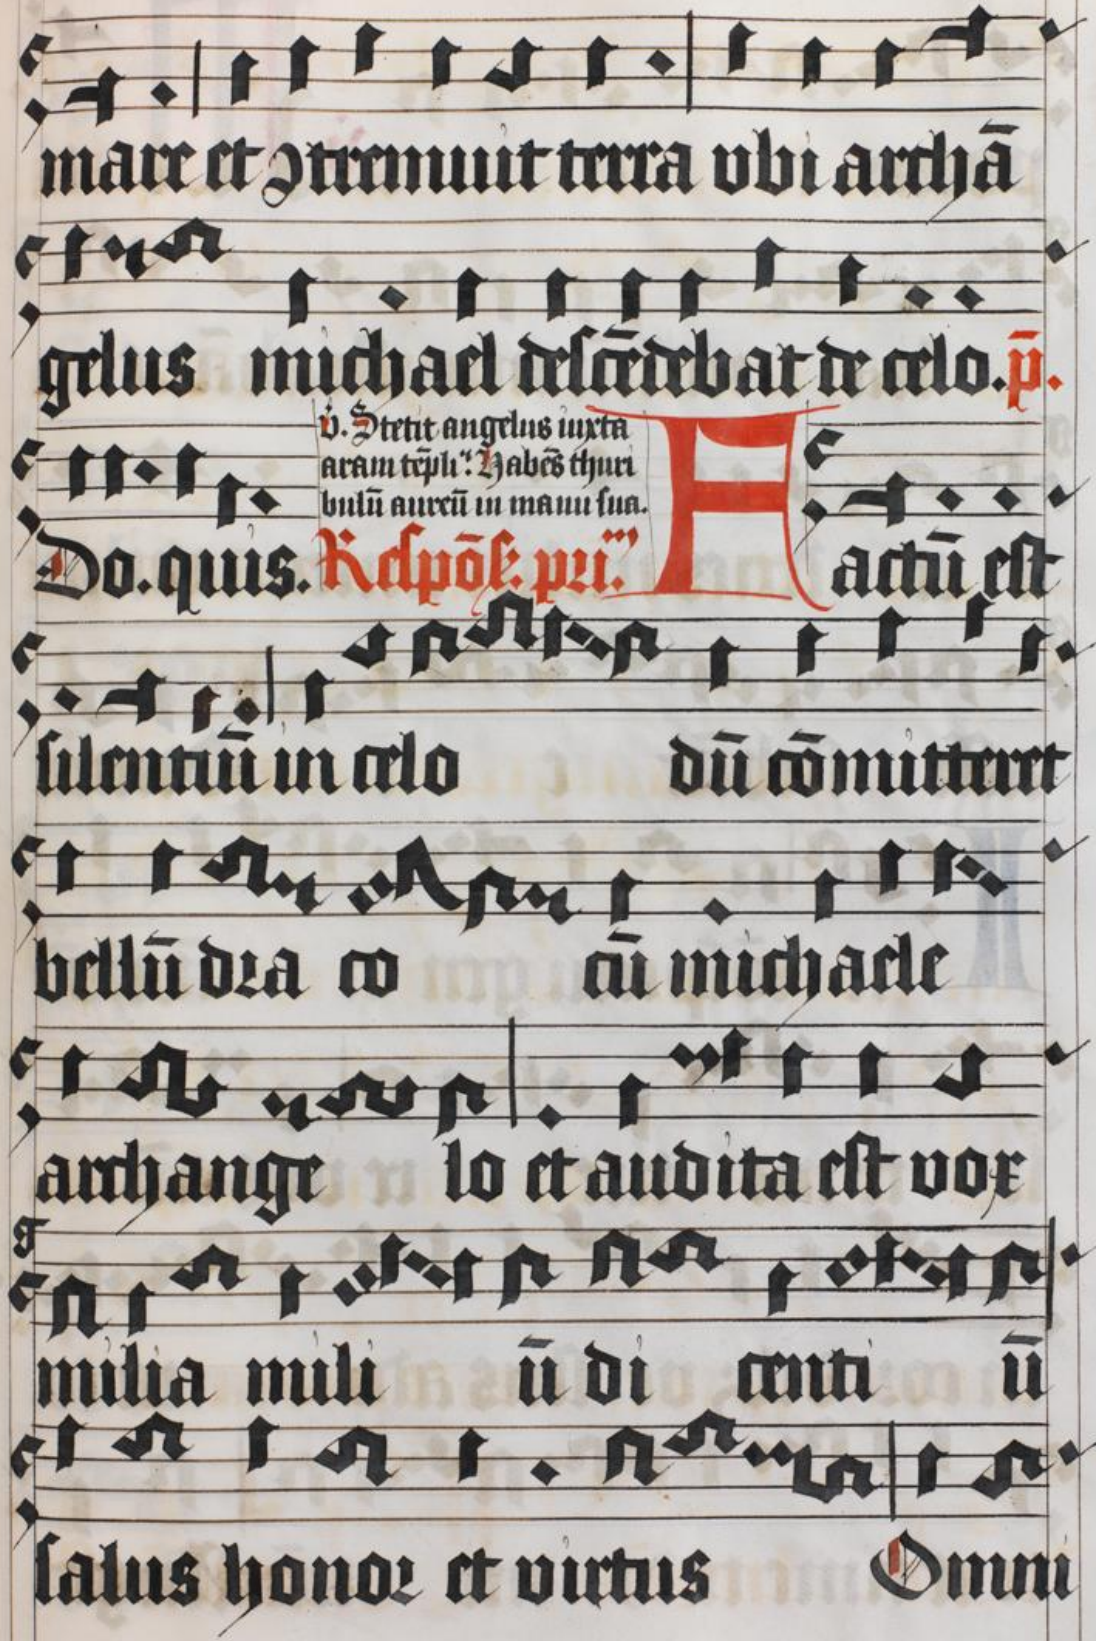 mare et ꝯtremuit terra vbi archā
gelus michael descēdebat de celo. p̄.
v̇. Stetit angelus iuxta
aram tēpli. Habēs thuri
bulū aureū in manu sua.
Do. quis. Respōs. pri. Factū est
silentiū in celo dū cōmitteret
bellū draco cū michaele
archangelo et audita est vox
milia miliū dicentiū
salus honor et virtus Omni